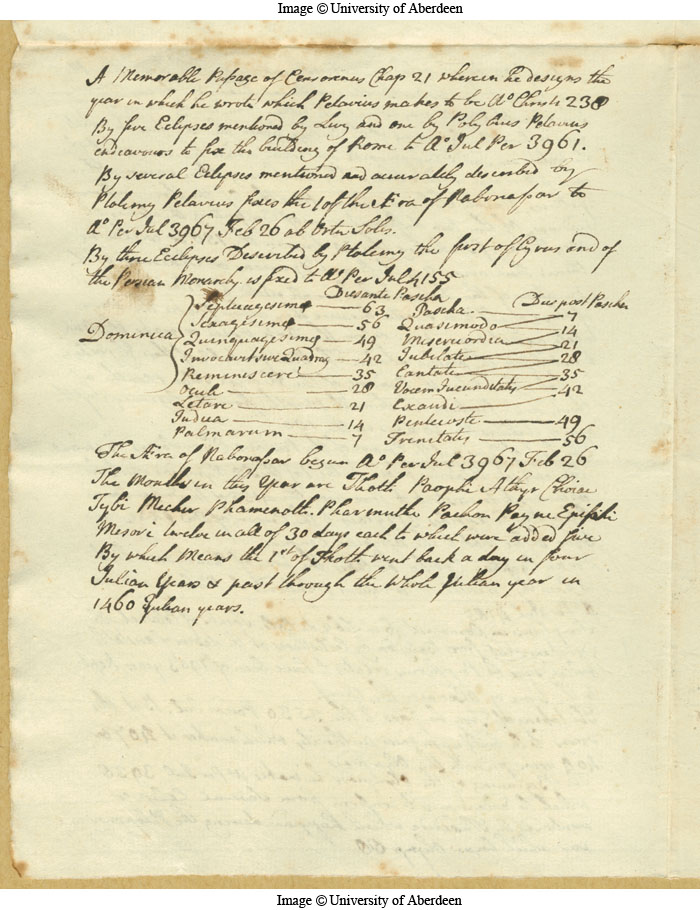 Image © University of Aberdeen
A Memorable Passage of Censorinus Chap 21 wherein he designs the
year in which he wrote which Petavius makes to be Aº Christi 238
By five Eclipses mentioned by Livy and one by Polybius Petavius
endeavours to fix the building of Rome to Aº Jul Per 3961.
By several Eclipses mentioned and accurately described by
Ptolemy Petavius fixes the 1 of the Æra of Nabonassar to
Aº Per Jul 3967 Feb 26 ab Ortu Solis.
By three Ecclipses Described by Ptolemy the first of Cyrus and of
the Persian Monarchy is fixed to Aº Per Jul 4155
Dies ante Pascha Dies post Pascha
Septuagesima 63 Pascha 7
Sexagesima 56 Quasimodo 14
Dominica Quinquagesima 49 Misericordia 21
Invocavit sive Quadrag 42 Jubilate 28
Reminiscere 35 Cantate 35
Oculi 28 Vocem Jucunditatis 42
Letare 21 Exaudi
Judica 14 Pentecoste 49
Palmarum 7 Trinitatis 56
The Æra of Nabonassar began Aº Per Jul 3967 Feb 26
The Months in this Year are Thoth Paophi Athyr Choiac
Tybi Mechir Phamenoth Pharmuthi Pachon Payni Epiphi
Mesori twelve in all of 30 days each to which were added five
By which Means the 1st of Thoth went back a day in four
Julian Years & past through the whole Julian year in
1460 Julian years.
Image © University of Aberdeen